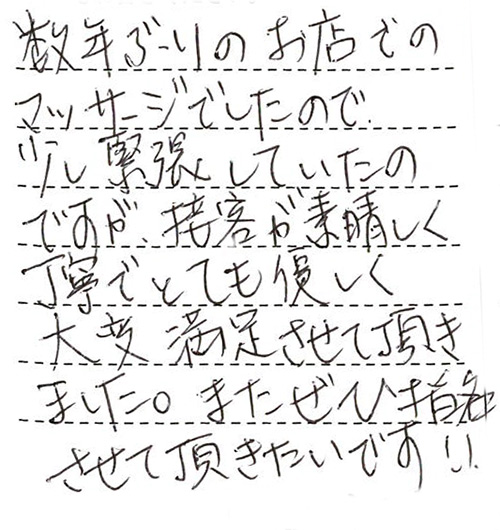 数年ぶりのお店での
マッサージでしたので
少し緊張していたの
ですが、接客が素晴しく
丁寧でとても優しく
大変満足させて頂き
ました。またぜひ指名
させて頂きたいです!!